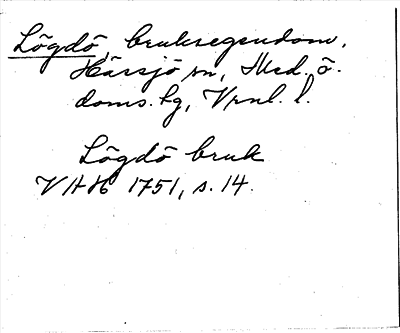 Lögdö, bruksegendom,
Hässjö sn, Med. ö.
doms. hg, Vrnl. l.
Lögdö bruk
VAH 1751, s. 14.